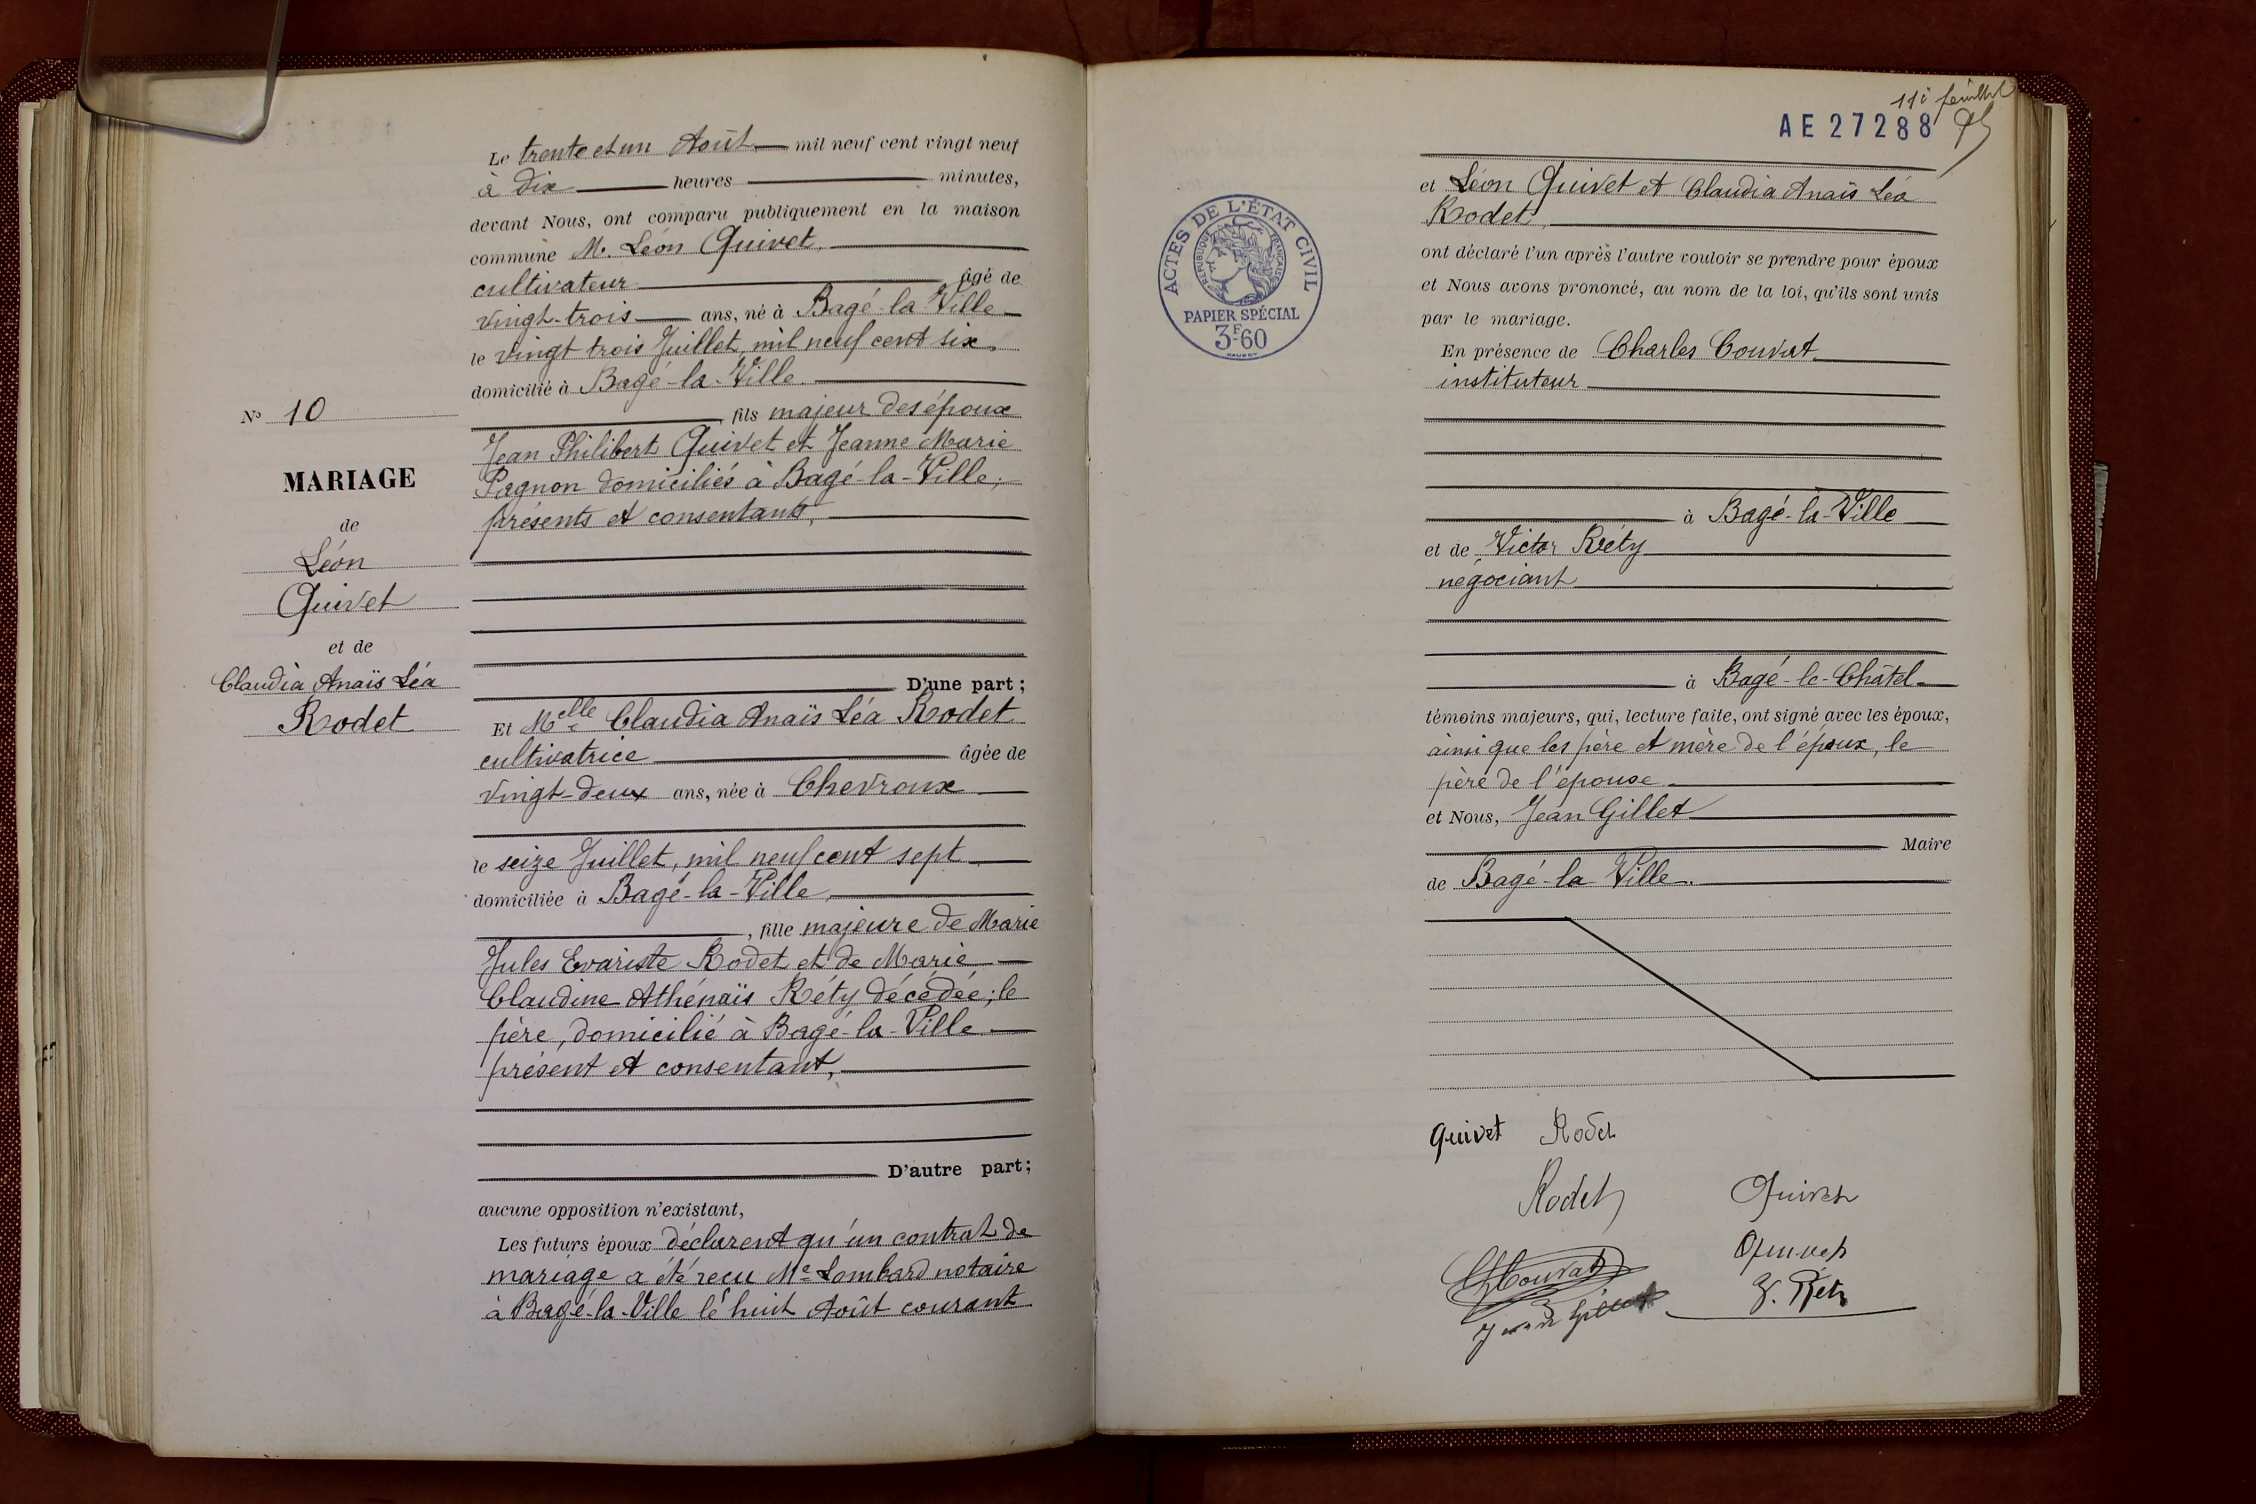 Le trente et un Août mil neuf cent vingt neuf
à dix heures minutes,
devant Nous, ont comparu publiquement en la maison
commune M. Léon Quivet,
cultivateur âgé de
vingt-trois ans, né à Bagé-la-Ville
le vingt trois Juillet, mil neuf cent six
domicilié à Bagé-la-Ville.
fils majeur des époux
Jean Philibert Quivet et Jeanne Marie
Pagnon domiciliés à Bagé-la-Ville;
présents et consentants,
D'une part;
Et Melle Claudia Anaïs Léa Rodet
cultivatrice âgée de
vingt-deux ans, née à Chevroux
le seize Juillet, mil neuf cent sept
domiciliée à Bagé-la-Ville,
, fille majeure de Marie
Jules Evariste Rodet et de Marie
Claudine Athénaïs Réty décédée; le
père, domicilié à Bagé-la-Ville
présent et consentant,
D'autre part;
aucune opposition n'existant,
Les futurs époux déclarent qu'un contrat de
mariage a été reçu Me Lombard notaire
à Bagé-la-Ville le huit Août courant
No 10
MARIAGE
de
Léon
Quivet
et de
Claudia Anaïs Léa
Rodet
11e feuillet
AE 27288
ACTES DE L'ÉTAT CIVIL
RÉPUBLIQUE FRANÇAISE
PAPIER SPÉCIAL
3F60
et Léon Quivet et Claudia Anaïs Léa
Rodet,
ont déclaré l'un après l'autre vouloir se prendre pour époux
et Nous avons prononcé, au nom de la loi, qu'ils sont unis
par le mariage.
En présence de Charles Couvat
instituteur
à Bagé-la-Ville
et de Victor Réty
négociant
à Bagé-le-Châtel
témoins majeurs, qui, lecture faite, ont signé avec les époux,
ainsi que les père et mère de l'époux, le
père de l'épouse
et Nous, Jean Gillet
Maire
de Bagé-la Ville.
Quivet Rodet
Rodet Quivet
Quivet
Ch Couvat
V. Réty
Jean Gillet